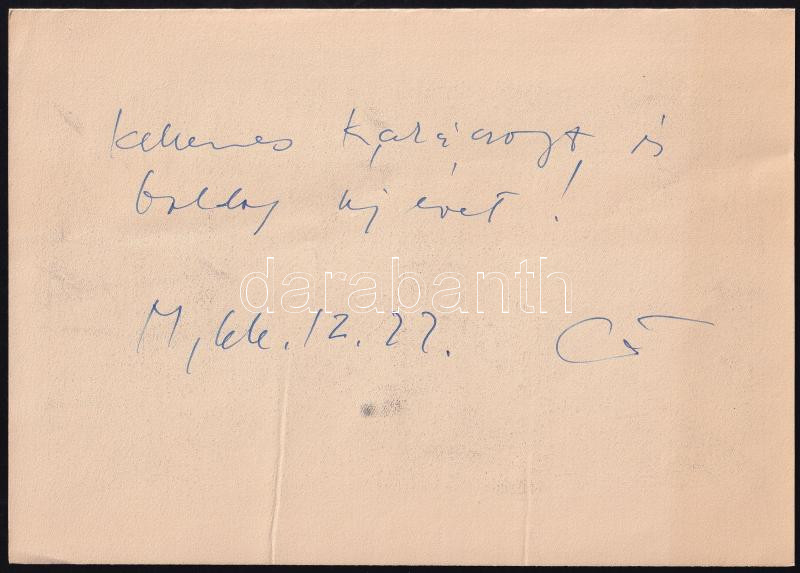 Kellemes Karácsonyt és
boldog új évet!
darabanth
M, 66. 12. 22.